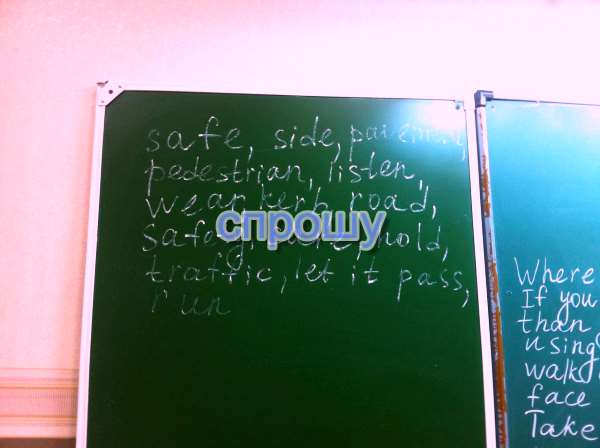 safe, side, pavement,
pedestrian, listen,
wear, kerb, road,
hold,
traffic, let it pass,
run
спрошу
Where
If you
than
using
walk
face
Take